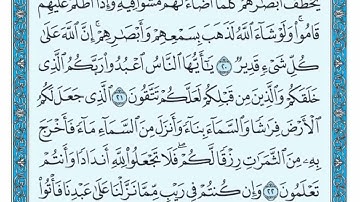 يَخْطَفُ أَبْصَٰرَهُمْ كُلَّمَآ أَضَآءَ لَهُم مَّشَوْا۟ فِيهِ وَإِذَآ أَظْلَمَ عَلَيْهِمْ
قَامُوا۟ وَلَوْ شَآءَ ٱللَّهُ لَذَهَبَ بِسَمْعِهِمْ وَأَبْصَٰرِهِمْ إِنَّ ٱللَّهَ عَلَىٰ
كُلِّ شَىْءٍ قَدِيرٌ ٢٠ يَٰٓأَيُّهَا ٱلنَّاسُ ٱعْبُدُوا۟ رَبَّكُمُ ٱلَّذِى
خَلَقَكُمْ وَٱلَّذِينَ مِن قَبْلِكُمْ لَعَلَّكُمْ تَتَّقُونَ ٢١ ٱلَّذِى جَعَلَ لَكُمُ
ٱلْأَرْضَ فِرَٰشًا وَٱلسَّمَآءَ بِنَآءً وَأَنزَلَ مِنَ ٱلسَّمَآءِ مَآءً فَأَخْرَجَ
بِهِۦ مِنَ ٱلثَّمَرَٰتِ رِزْقًا لَّكُمْ فَلَا تَجْعَلُوا۟ لِلَّهِ أَندَادًا وَأَنتُمْ
تَعْلَمُونَ ٢٢ وَإِن كُنتُمْ فِى رَيْبٍ مِّمَّا نَزَّلْنَا عَلَىٰ عَبْدِنَا فَأْتُوا۟